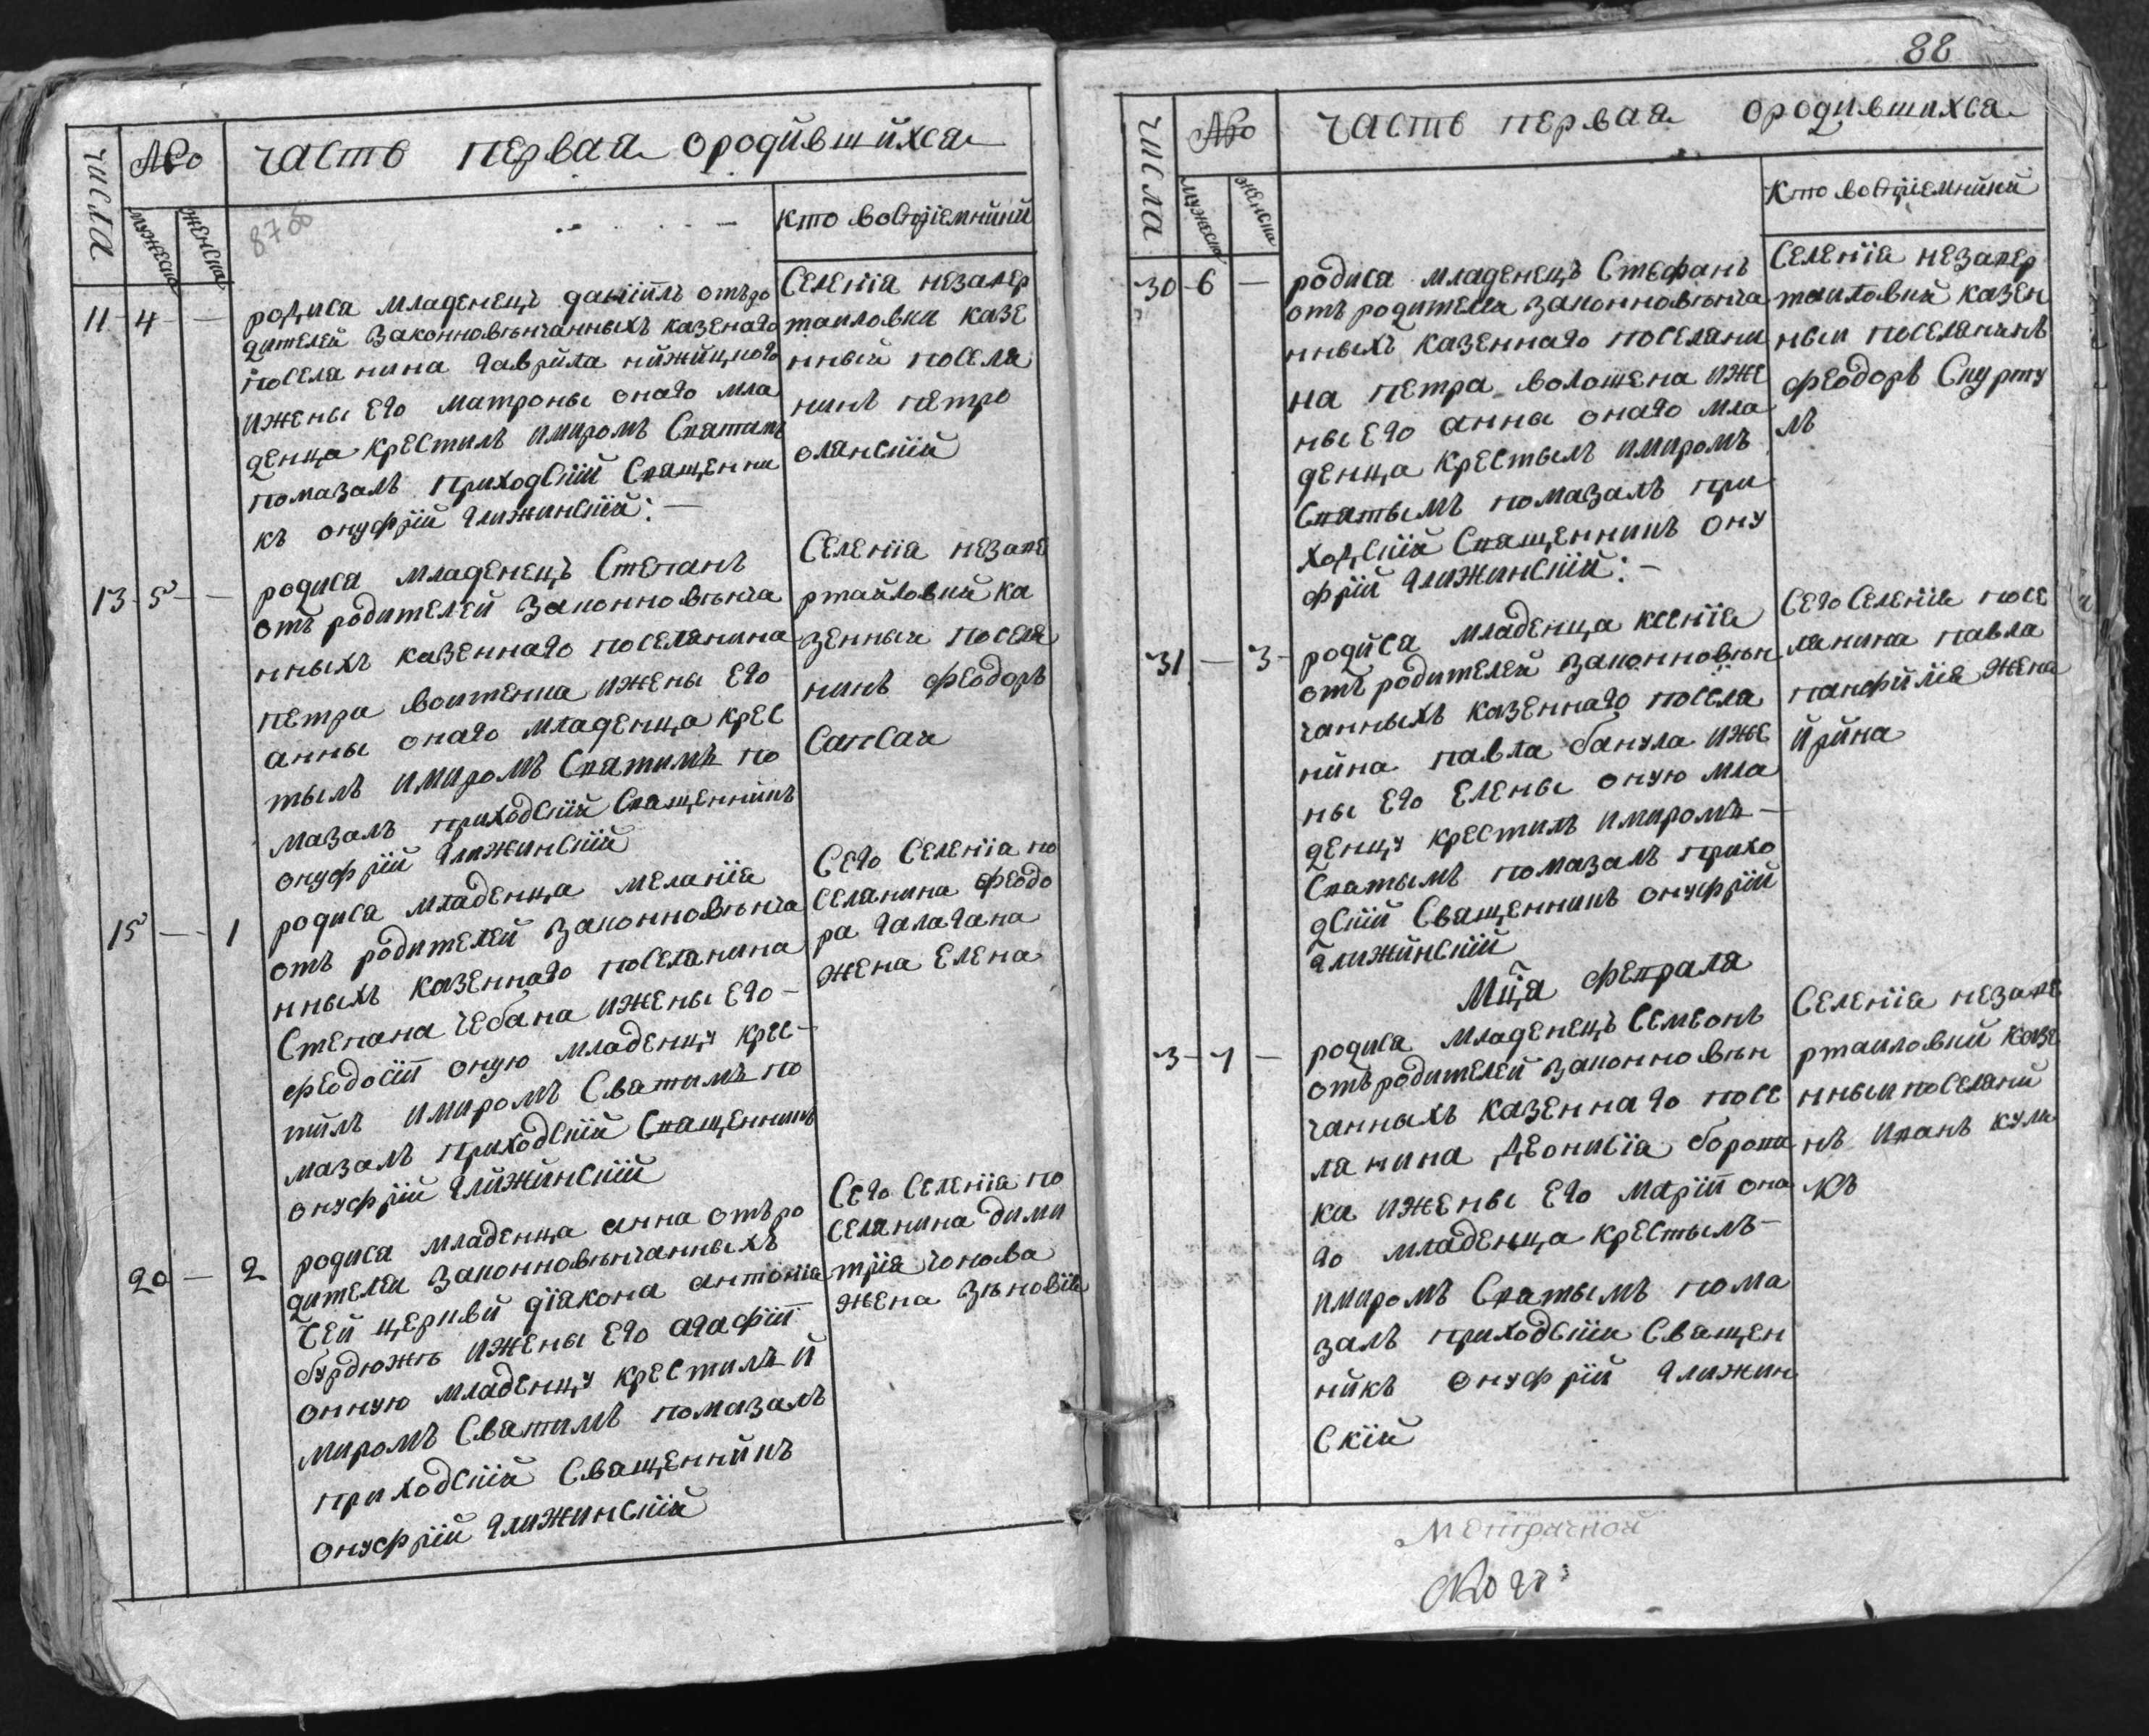 числа
№
часть первая ородившихся
мужеска
женска
8788
кто воспріемники
11 4
родися младенецъ даніилъ отъро
дителей законновѣнчанныхъ казенаго
поселанина гаврила
ижены его матроны онаго мла
денца крестилъ имиромъ Святимъ
помазалъ приходскій Священни
къ онуфрій глижинскій
Селенія незавер
таиловки казе
нный поселя
нинъ петро
олянскій
13 5
родися младенецъ Степанъ
отъ родителей законновѣнча
нныхъ казеннаго поселянина
петра воитенка ижены его
анны онаго младенца крес
тылъ имиромъ Святимъ по
мазалъ приходскій Священникъ
онуфрій глижинскій
Селенія незаве
ртайловки ка
зенныи поселя
нинъ феодоръ
Сапсаи
15 1
родися младенца меланія
отъ родителей законновѣнча
нныхъ казеннаго поселанина
Степана чебана ижены его
феодосіи оную младенцу крес
тилъ имиромъ Святимъ по
мазалъ приходскій Священникъ
онуфрій глижинскій
Сего Селенія по
селянина феодо
ра галагана
жена Елена
20 2
родися младенца анна отъро
дителеи законновѣнчанныхъ
Сей церкви діакона антонія
бурдюжъ ижены его агафіи
онную младенцу крестилъ и
миромъ Святимъ помазалъ
приходскій Священникъ
онуфрій глижинскій
Сего Селенія по
селянина дими
трія чокова
жена зѣновія
88
числа
№
часть первая ородившихся
мужеска
женска
кто воспріемники
30 6
родися младенецъ Стефанъ
отъ родителеи законновѣнча
нныхъ казеннаго поселяни
на петра волошена иже
ны его анны онаго мла
денца крестылъ имиромъ
Святымъ помазалъ при
ходскій Священникъ ону
фрій глижинскій
Селенія незавер
таиловки казен
ныи поселянинъ
феодоръ Скурту
лъ
31 3
родися младенца ксенія
отъ родителей законновѣн
чанныхъ казеннаго посела
нина павла банула иже
ны его Елены оную мла
денцу крестилъ имиромъ
Святымъ помазалъ прихо
дскій Священникъ онуфрій
глижинскій
Сего Селенія посе
лянина павла
панфилія жена
ирина
Мца февраля
3 7
родися младенецъ Семеонъ
отъродителей законновѣн
чанныхъ казеннаго посе
лянина Деонисія борови
ка ижены его маріи она
го младенца крестылъ
имиромъ Святымъ пома
залъ приходскіи Священ
никъ онуфрій глижин
скій
Селенія незаве
ртаиловки казе
нныи поселяни
нъ иванъ кули
къ
Метричной
№